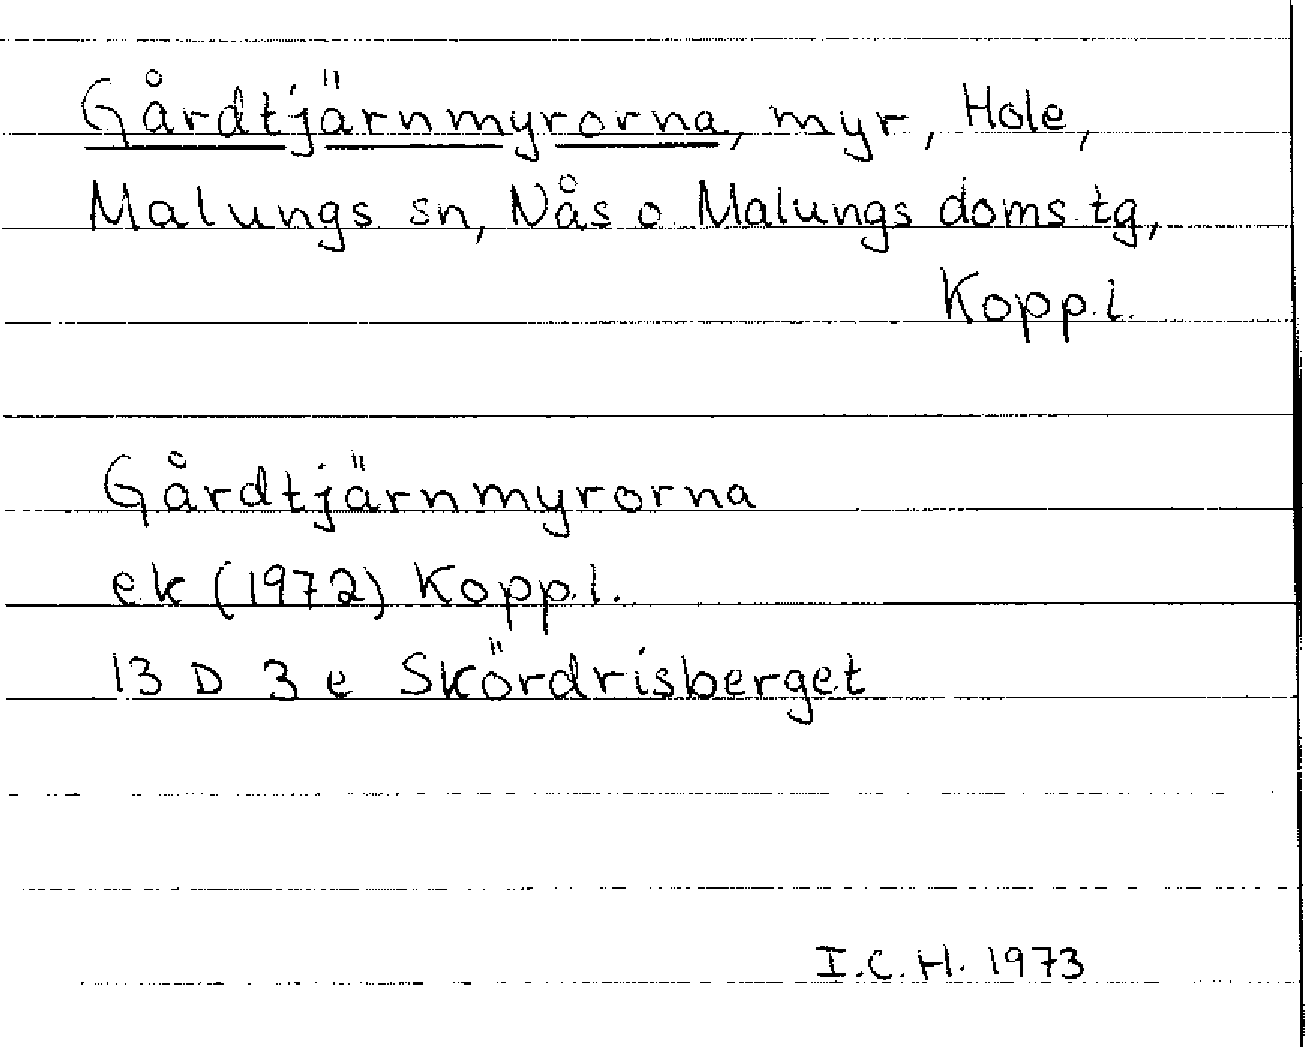 Gårdtjärnmyrorna, myr, Hole,
Malungs sn, Nås o. Malungs doms.tg,
Kopp.l.
Gårdtjärnmyrorna
ek (1972) Kopp.l.
13 D 3 e Skördrisberget
I.C.H. 1973